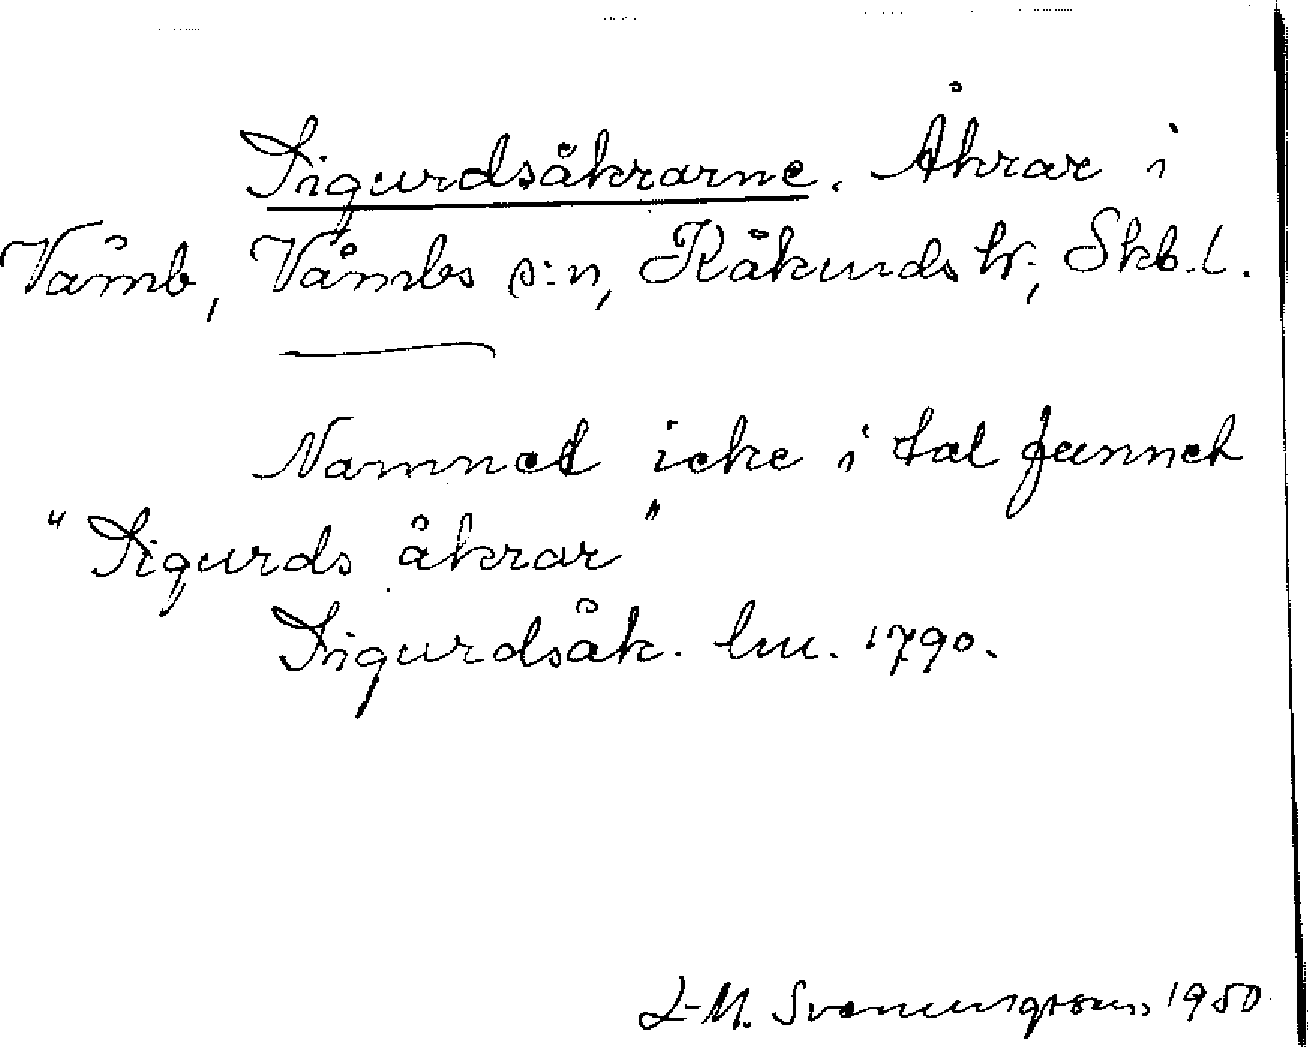 Sigurdsåkrarne. Åkrar i
Våmb, Våmbs s:n, Kåkinds hr., Skb. l.
Namnet icke i tal funnet
"Sigurds åkrar"
Sigurdsåk. lm. 1790.
L-M. Svenungsson 1950